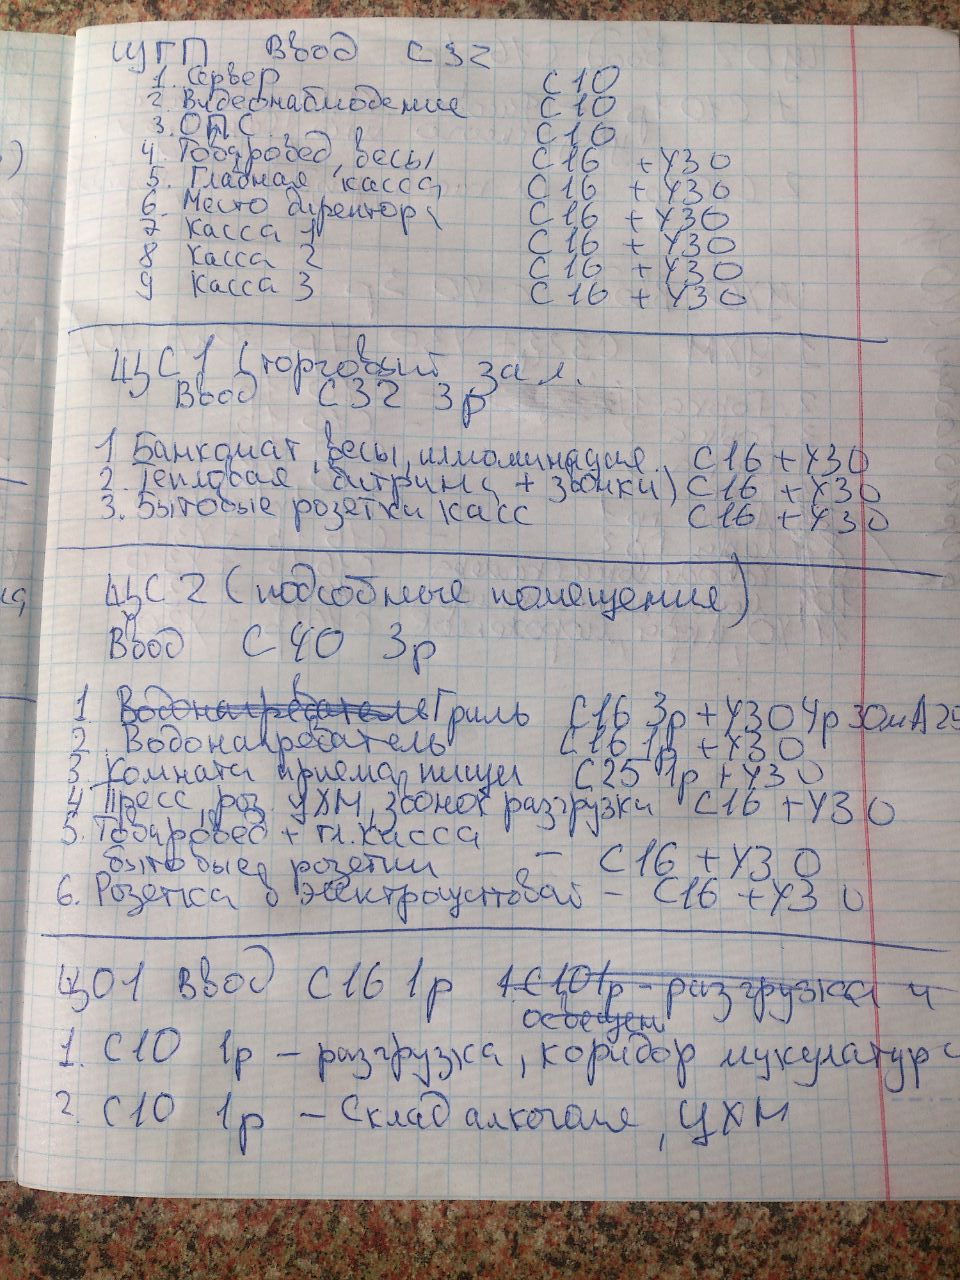 ЩГП Ввод С32
1. Сервер С10
2. Видеонаблюдение С10
3. ОПС С10
4. Товаровед, весы С16 + УЗО
5. Главная касса С16 + УЗО
6. Место директора С16 + УЗО
7 Касса 1 С16 + УЗО
8 Касса 2 С16 + УЗО
9 Касса 3 С16 + УЗО
ЩС1 (торговый зал.
Ввод С32 3р
1 Банкомат, весы, иллюминация С16 + УЗО
2. Тепловая витрина + звонки) С16 + УЗО
3. Бытовые розетки касс С16 + УЗО
ЩС2 (подсобные помещения)
Ввод С40 3р
1 Водонагреватель Гриль С16 3р + УЗО 4р 30мА 25
2. Водонагреватель С16 1р + УЗО
3. Комната приема пищи С25 1р + УЗО
4 Пресс, роз. ЦХМ, звонок разгрузки С16 + УЗО
5. Товаровед + гл. касса
бытовые розетки – С16 + УЗО
6. Розетка в электрощитовой – С16 + УЗО
ЩО1 Ввод С16 1р 1 С10 1р – разгрузка и
освещен
1. С10 1р – разгрузка, коридор мукулатур
2. С10 1р – Склад алкоголя, ЦХМ